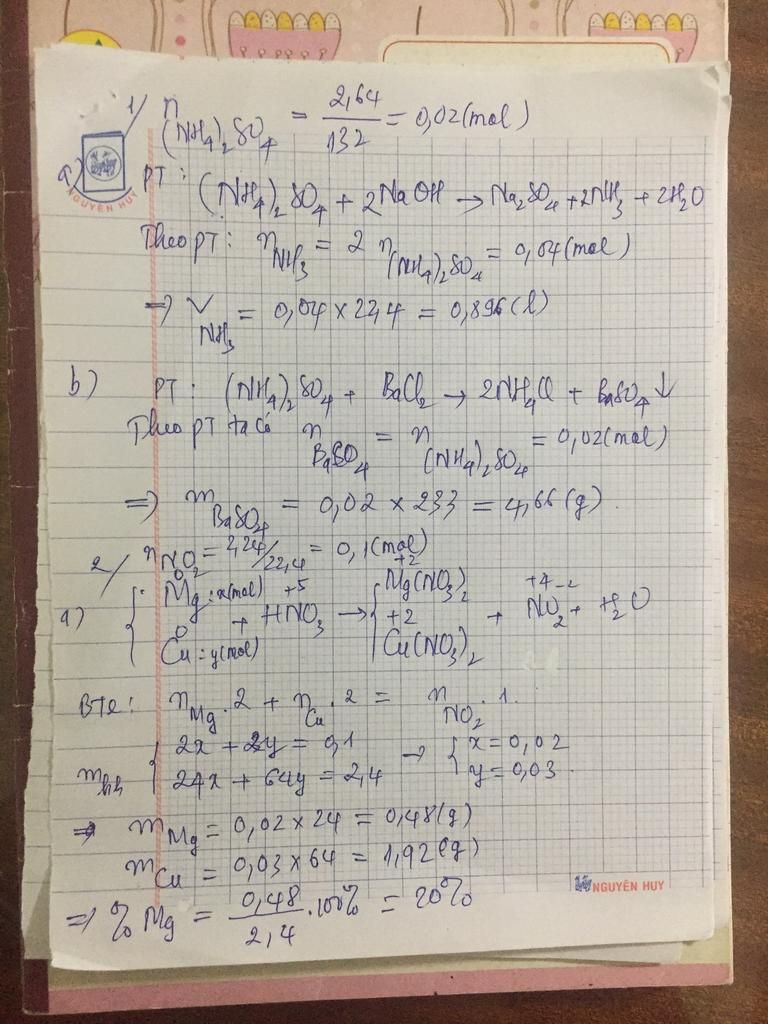 1/ n (NH4)2SO4 = 2,64/132 = 0,02 (mol)
NGUYÊN HUY
a) PT: (NH4)2SO4 + 2NaOH → Na2SO4 + 2NH3 + 2H2O
Theo PT: n NH3 = 2 n (NH4)2SO4 = 0,04 (mol)
⇒ V NH3 = 0,04 × 22,4 = 0,896 (l)
b) PT: (NH4)2SO4 + BaCl2 → 2NH4Cl + BaSO4 ↓
Theo PT ta có n BaSO4 = n (NH4)2SO4 = 0,02 (mol)
⇒ m BaSO4 = 0,02 × 233 = 4,66 (g).
2/ n NO2 = 2,24/22,4 = 0,1 (mol)
a) { 0 Mg: x(mol) + +5 HNO3 → { +2 Mg(NO3)2 + +4 -2 NO2 + H2O
0 Cu: y(mol) +2 Cu(NO3)2
BTe: n Mg . 2 + n Cu . 2 = n NO2 . 1.
{ 2x + 2y = 0,1 → { x = 0,02
m hh 24x + 64y = 2,4 y = 0,03.
⇒ m Mg = 0,02 × 24 = 0,48 (g)
m Cu = 0,03 × 64 = 1,92 (g)
NGUYÊN HUY
⇒ % Mg = 0,48/2,4 . 100% = 20%